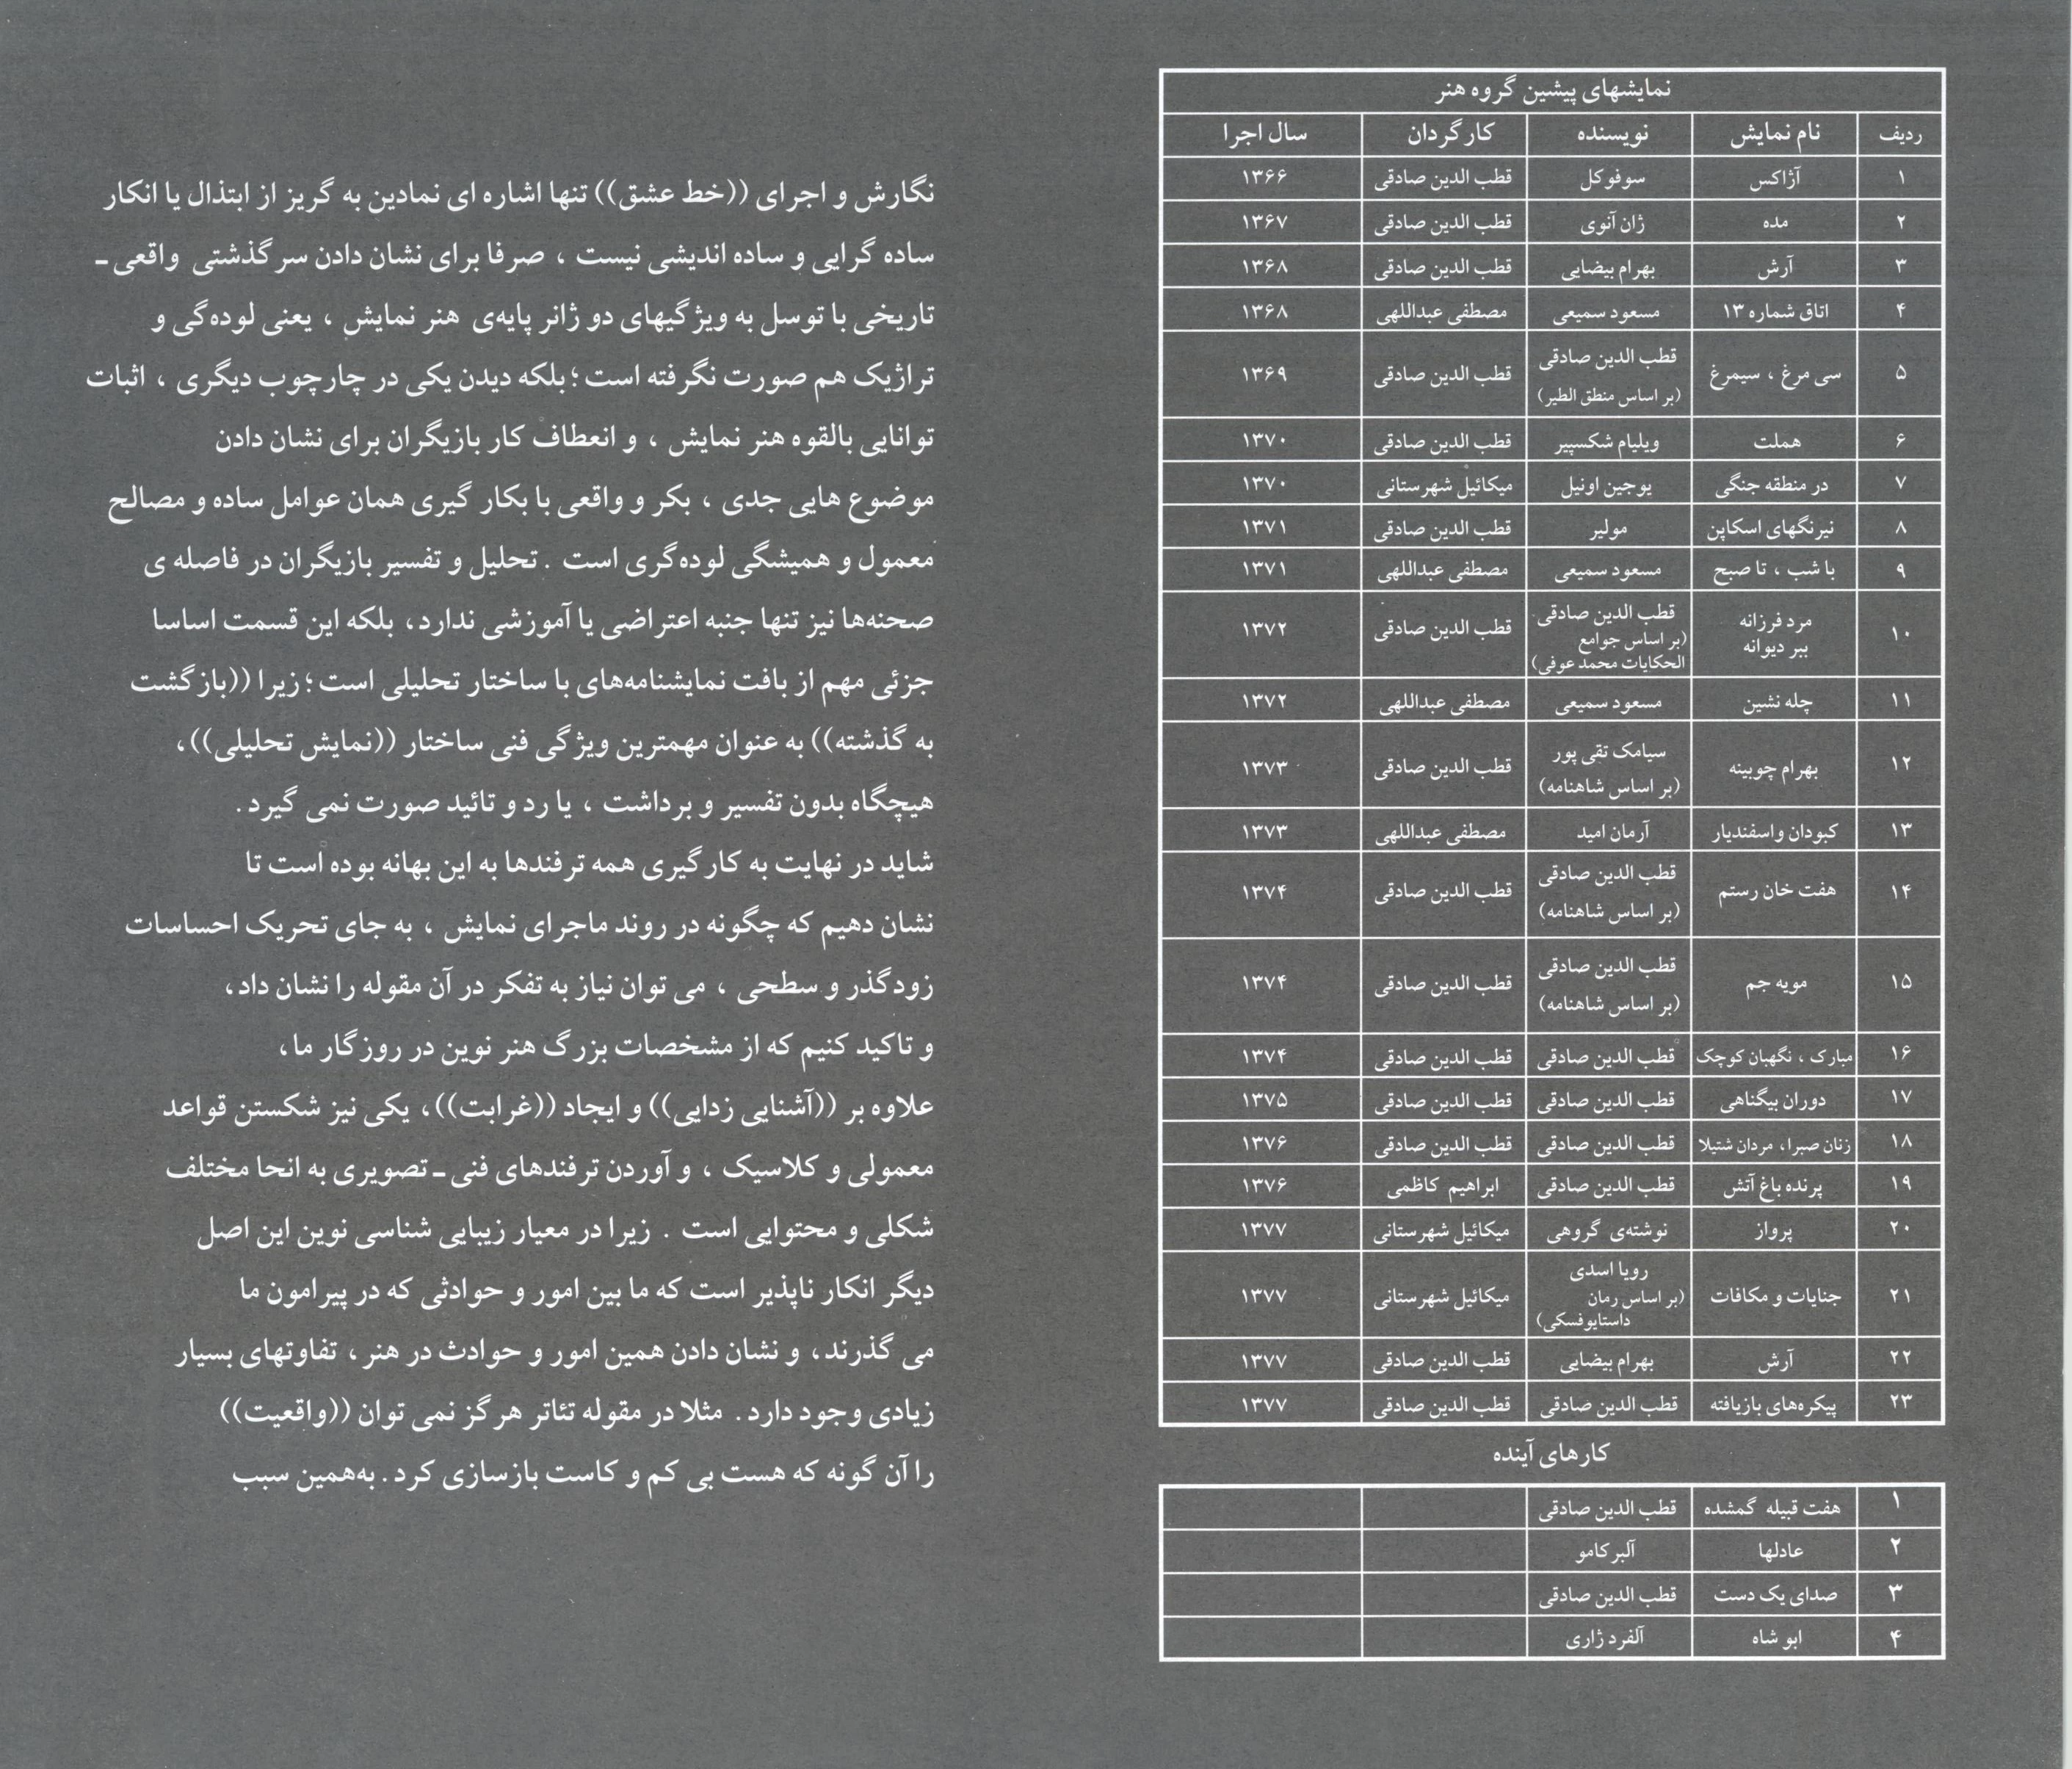 نمایشهای پیشین گروه هنر
ردیف نام نمایش نویسنده کارگردان سال اجرا
۱ آژاکس سوفوکل قطب الدین صادقی ۱۳۶۶
۲ مده ژان آنوی قطب الدین صادقی ۱۳۶۷
۳ آرش بهرام بیضایی قطب الدین صادقی ۱۳۶۸
۴ اتاق شماره ۱۳ مسعود سمیعی مصطفی عبداللهی ۱۳۶۸
۵ سی مرغ ، سیمرغ قطب الدین صادقی (بر اساس منطق الطیر) قطب الدین صادقی ۱۳۶۹
۶ هملت ویلیام شکسپیر قطب الدین صادقی ۱۳۷۰
۷ در منطقه جنگی یوجین اونیل میکائیل شهرستانی ۱۳۷۰
۸ نیرنگهای اسکاپن مولیر قطب الدین صادقی ۱۳۷۱
۹ با شب ، تا صبح مسعود سمیعی مصطفی عبداللهی ۱۳۷۱
۱۰ مرد فرزانه ببر دیوانه قطب الدین صادقی (بر اساس جوامع الحکایات محمد عوفی) قطب الدین صادقی ۱۳۷۲
۱۱ چله نشین مسعود سمیعی مصطفی عبداللهی ۱۳۷۲
۱۲ بهرام چوبینه سیامک تقی پور (بر اساس شاهنامه) قطب الدین صادقی ۱۳۷۳
۱۳ کبودان واسفندیار آرمان امید مصطفی عبداللهی ۱۳۷۳
۱۴ هفت خان رستم قطب الدین صادقی (بر اساس شاهنامه) قطب الدین صادقی ۱۳۷۴
۱۵ مویه جم قطب الدین صادقی (بر اساس شاهنامه) قطب الدین صادقی ۱۳۷۴
۱۶ مبارک ، نگهبان کوچک قطب الدین صادقی قطب الدین صادقی ۱۳۷۴
۱۷ دوران بیگناهی قطب الدین صادقی قطب الدین صادقی ۱۳۷۵
۱۸ زنان صبرا، مردان شتیلا قطب الدین صادقی قطب الدین صادقی ۱۳۷۶
۱۹ پرنده باغ آتش قطب الدین صادقی ابراهیم کاظمی ۱۳۷۶
۲۰ پرواز نوشته‌ی گروهی میکائیل شهرستانی ۱۳۷۷
۲۱ جنایات و مکافات رویا اسدی (بر اساس رمان داستایوفسکی) میکائیل شهرستانی ۱۳۷۷
۲۲ آرش بهرام بیضایی قطب الدین صادقی ۱۳۷۷
۲۳ پیکره‌های بازیافته قطب الدین صادقی قطب الدین صادقی ۱۳۷۷
کارهای آینده
۱ هفت قبیله گمشده قطب الدین صادقی
۲ عادلها آلبرکامو
۳ صدای یک دست قطب الدین صادقی
۴ ابو شاه آلفرد ژاری
نگارش و اجرای ((خط عشق)) تنها اشاره ای نمادین به گریز از ابتذال یا انکار
ساده گرایی و ساده اندیشی نیست ، صرفا برای نشان دادن سرگذشتی واقعی-
تاریخی با توسل به ویژگیهای دو ژانر پایه‌ی هنر نمایش ، یعنی لوده‌گی و
تراژیک هم صورت نگرفته است؛ بلکه دیدن یکی در چارچوب دیگری ، اثبات
توانایی بالقوه هنر نمایش ، و انعطاف کار بازیگران برای نشان دادن
موضوع هایی جدی ، بکر و واقعی با بکار گیری همان عوامل ساده و مصالح
معمول و همیشگی لوده‌گری است . تحلیل و تفسیر بازیگران در فاصله ی
صحنه‌ها نیز تنها جنبه اعتراضی یا آموزشی ندارد، بلکه این قسمت اساسا
جزئی مهم از بافت نمایشنامه‌های با ساختار تحلیلی است؛ زیرا ((بازگشت
به گذشته)) به عنوان مهمترین ویژگی فنی ساختار ((نمایش تحلیلی))،
هیچگاه بدون تفسیر و برداشت ، یا رد و تائید صورت نمی گیرد.
شاید در نهایت به کارگیری همه ترفندها به این بهانه بوده است تا
نشان دهیم که چگونه در روند ماجرای نمایش ، به جای تحریک احساسات
زودگذر و سطحی ، می توان نیاز به تفکر در آن مقوله را نشان داد،
و تاکید کنیم که از مشخصات بزرگ هنر نوین در روزگار ما،
علاوه بر ((آشنایی زدایی)) و ایجاد ((غرابت))، یکی نیز شکستن قواعد
معمولی و کلاسیک ، و آوردن ترفندهای فنی - تصویری به انحا مختلف
شکلی و محتوایی است . زیرا در معیار زیبایی شناسی نوین این اصل
دیگر انکار ناپذیر است که ما بین امور و حوادثی که در پیرامون ما
می گذرند، و نشان دادن همین امور و حوادث در هنر، تفاوتهای بسیار
زیادی وجود دارد. مثلا در مقوله تئاتر هرگز نمی توان ((واقعیت))
را آن گونه که هست بی کم و کاست بازسازی کرد. به‌همین سبب